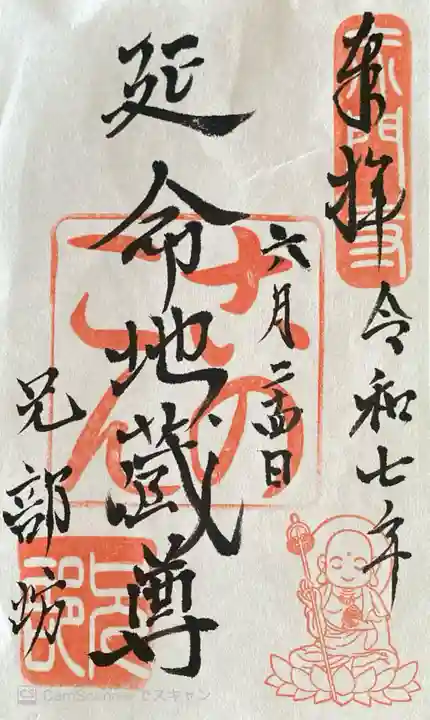 奉拝
令和七年
六月二十四日
延命地蔵尊
兄部坊
CS CamScanner でスキャン